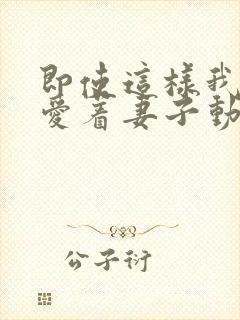 即使這樣我
愛着妻子動
公子衍